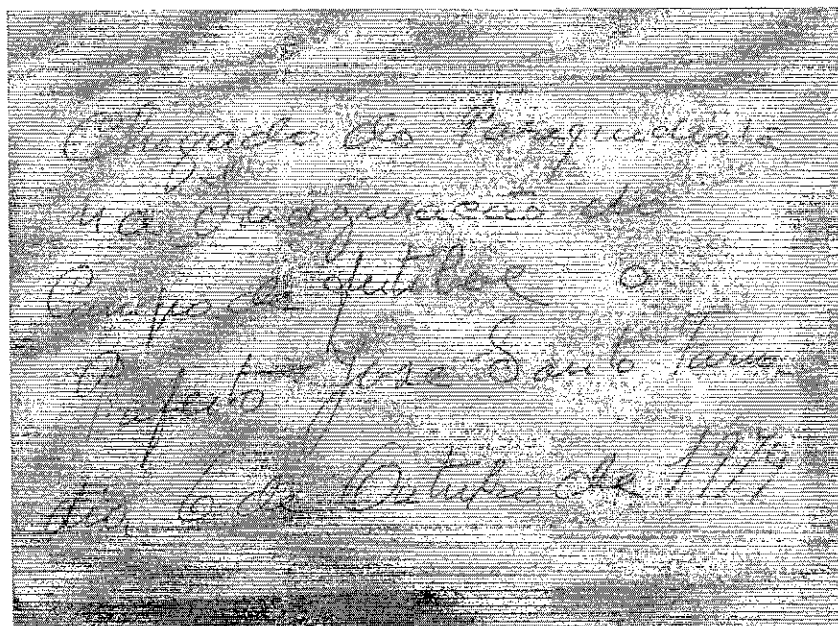 Chegada do Paraquedista
na Inauguração do
Campo de futibol o
Prefeito José Santo
dia 6 de Outubro de 1979